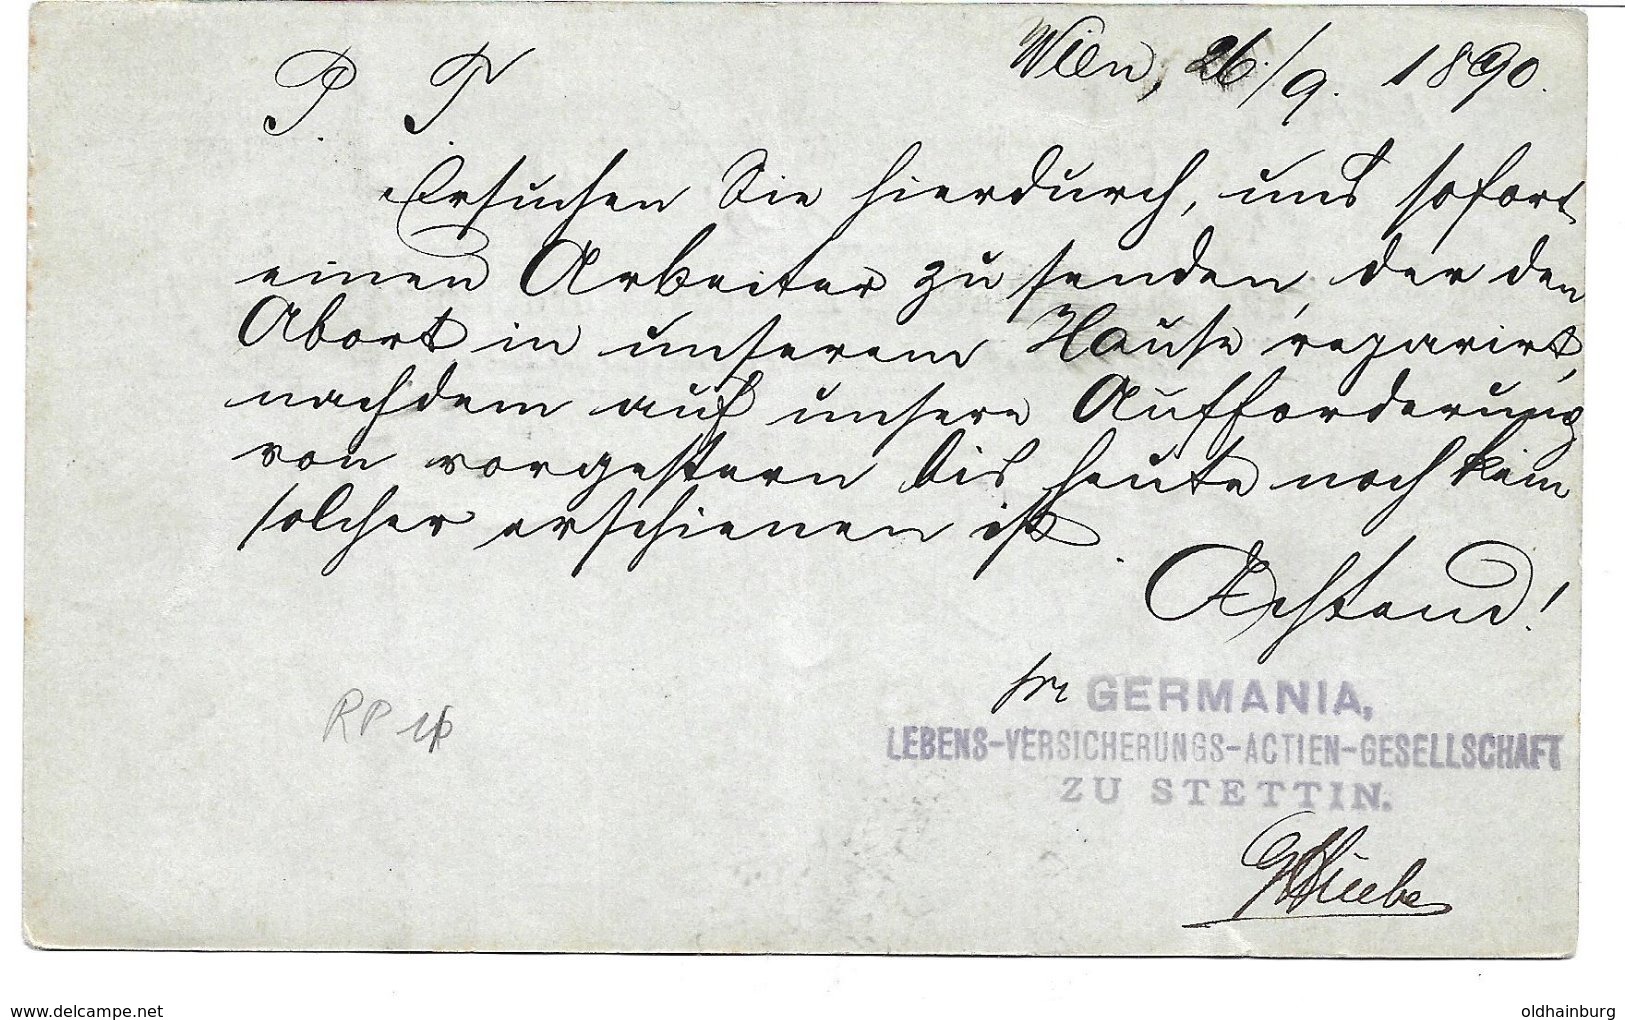 Wien, 26./9. 1890.
P. T.
Ersuchen Sie hierdurch, uns sofort
einen Arbeiter zu senden, der den
Abort in unserem Hause reparirt,
nachdem auf unsere Aufforderung
von vorgestern bis heute noch kein
solcher erschienen ist.
Achtend!
GERMANIA,
LEBENS-VERSICHERUNGS-ACTIEN-GESELLSCHAFT
ZU STETTIN.
RP
www.delcampe.net
oldhainburg